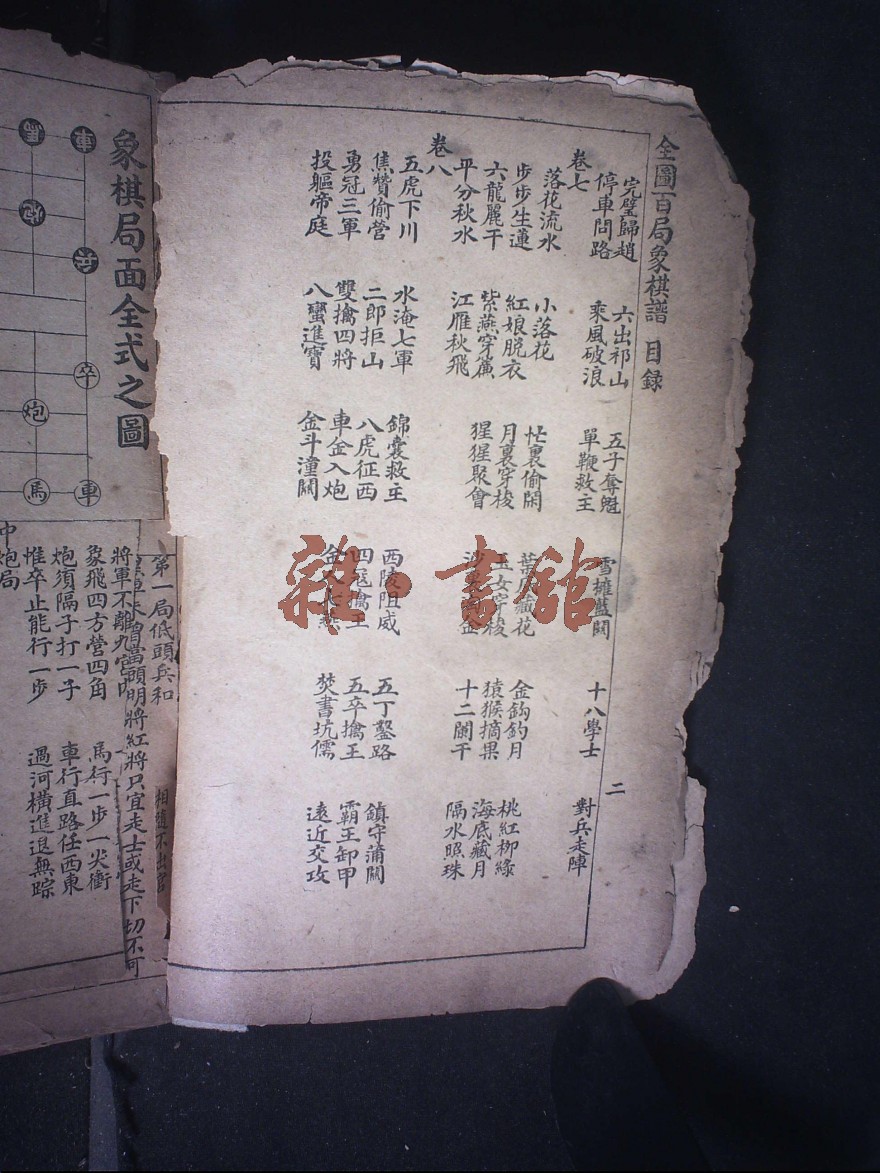 全圖百局象棋譜 目録 二
完璧歸趙 六出祁山 五子奪魁 雪擁藍關 十八學士 對兵走陣
停車問路 乘風破浪 單鞭救主
卷七
落花流水 小落花 忙裏偷閑 葉底藏花 金鈎釣月 桃紅柳綠
步步生蓮 紅娘脫衣 月裏穿梭 玉女穿梭 猿猴摘果 海底藏月
六龍麗干 紫燕穿簾 猩猩聚會 金 十二闌干 隔水照珠
平分秋水 江雁秋飛
卷八
五虎下川 水淹七軍 錦囊救主 西陵阻威 五丁鑿路 鎮守蒲關
焦贊偷營 二郎拒山 八虎征西 四寇擒王 五卒擒王 霸王卸甲
勇冠三軍 雙擒四將 車金入炮 金 焚書坑儒 遠近交攻
投軀帝庭 八蠻進寶 金斗潼關
雜·書館
象棋局面全式之圖
車
卒
車
炮
馬
第一局低頭兵和 相隨不出宮
當頭明將紅將只宜走士或走下切不可
將軍不離九宮內
象飛四方營四角 馬行一步一尖衝
炮須隔子打一子 車行直路任西東
惟卒止能行一步 過河橫進退無踪
中炮局